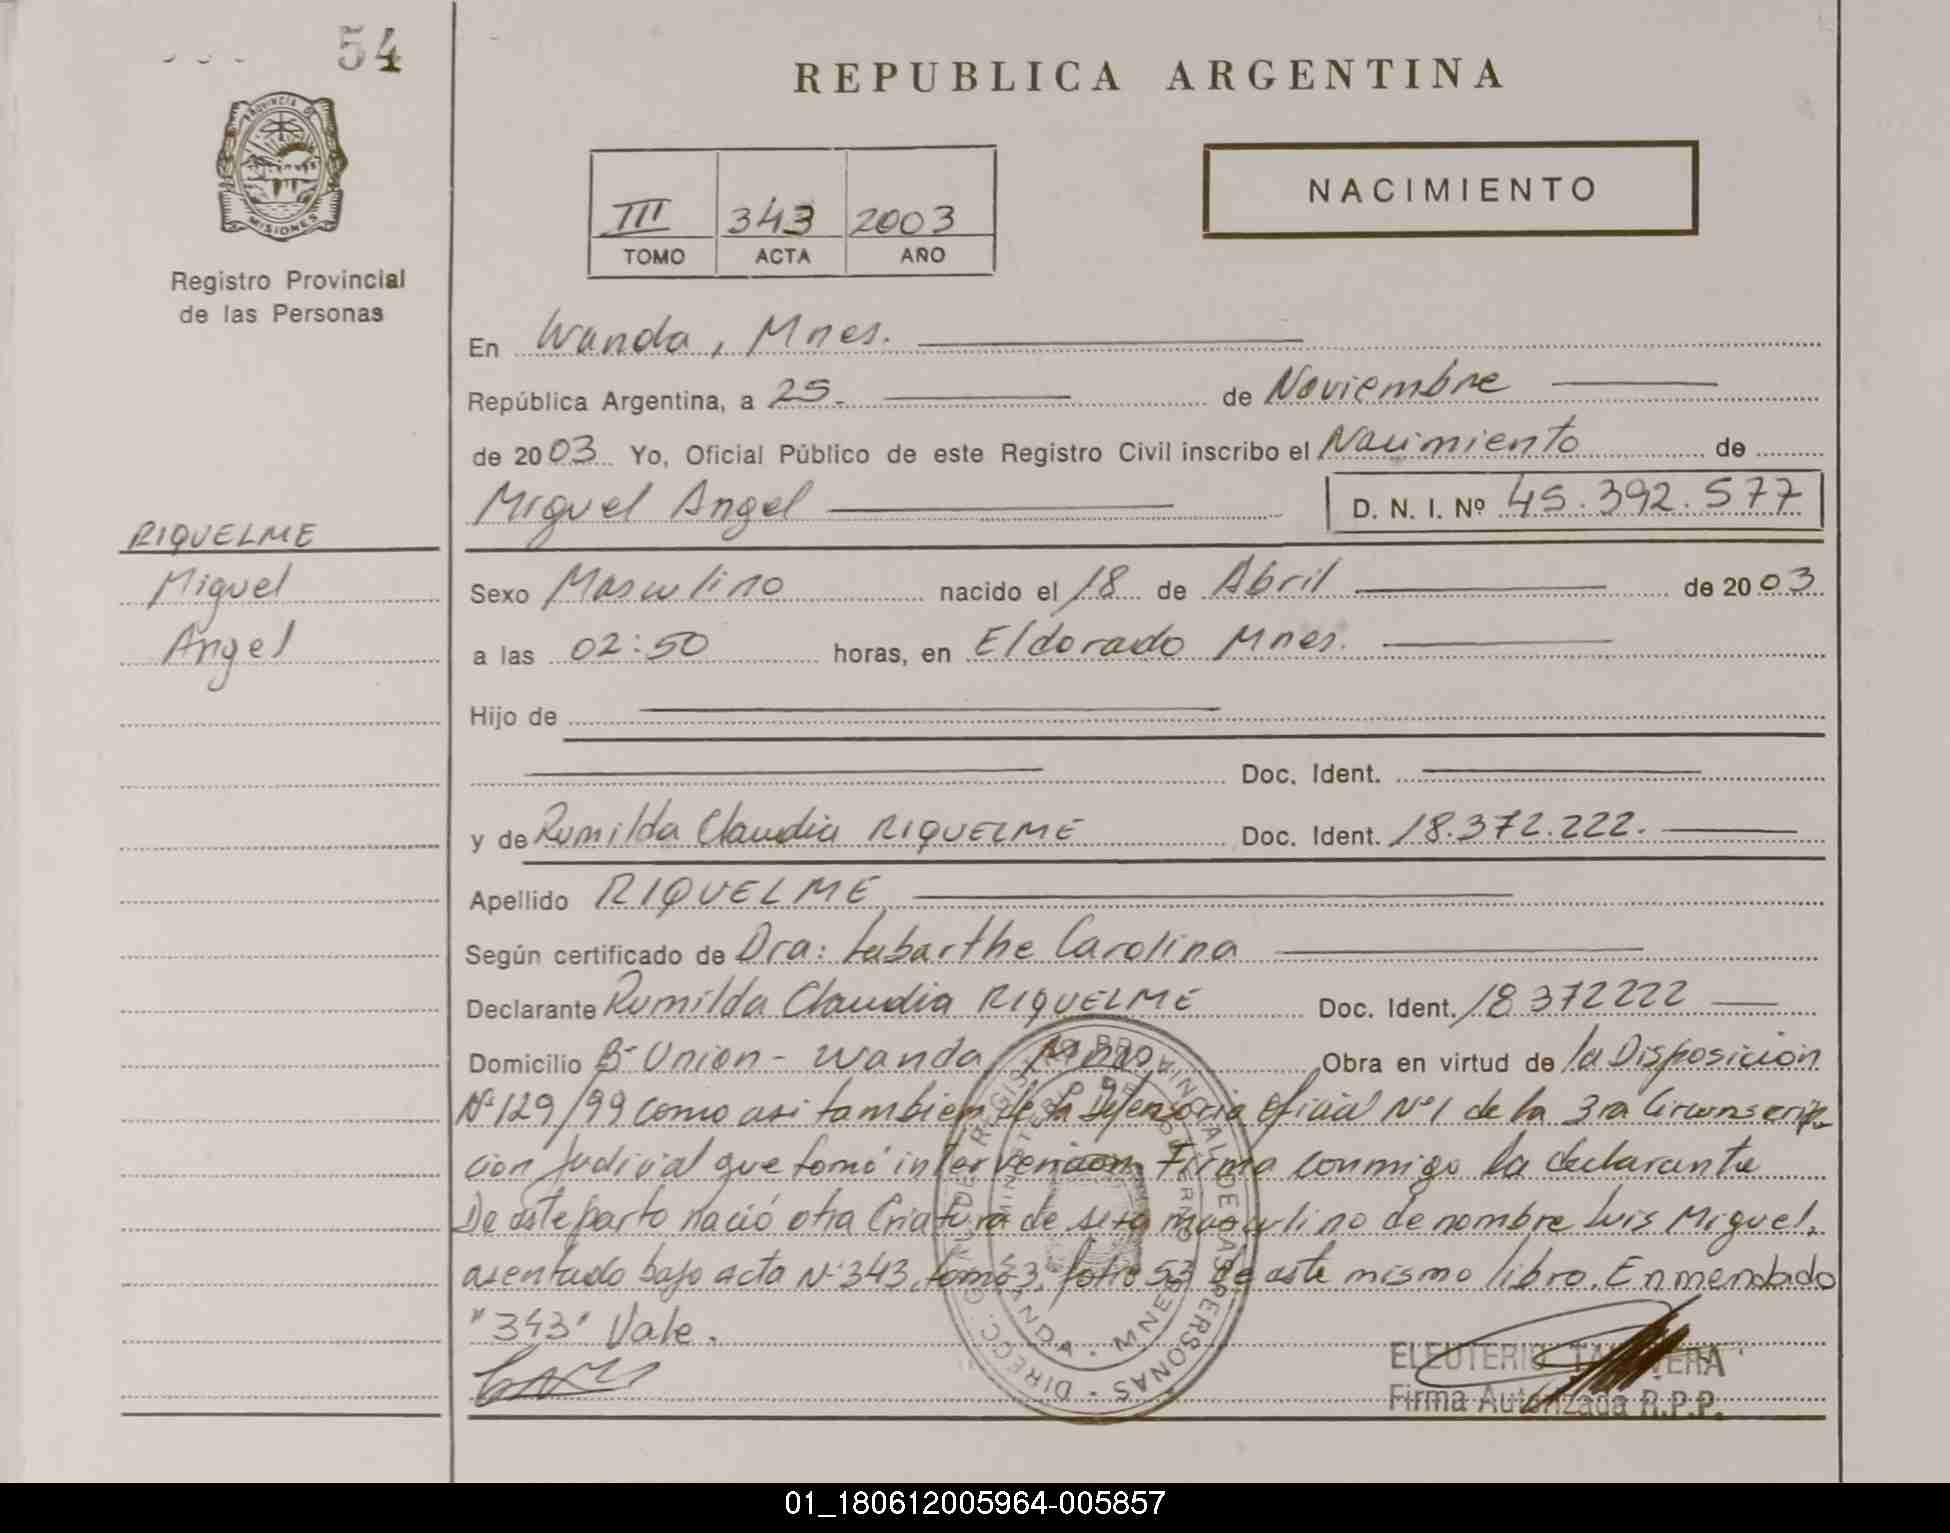 54
PROVINCIA DE
MISIONES
Registro Provincial
de las Personas
RIQUELME
Miguel
Angel
REPUBLICA ARGENTINA
III 343 2003
TOMO ACTA AÑO
NACIMIENTO
En Wanda, Mnes.
República Argentina, a 25. de Noviembre
de 2003 Yo, Oficial Público de este Registro Civil inscribo el Nacimiento de
Miguel Angel D. N. I. Nº 45.392.577
Sexo Masculino nacido el 18 de Abril de 2003
a las 02:50 horas, en Eldorado Mnes.
Hijo de
Doc. Ident.
y de Rumilda Claudia RIQUELME Doc. Ident. 18.372.222.
Apellido RIQUELME
Según certificado de Dra: Labarthe Carolina
Declarante Rumilda Claudia RIQUELME Doc. Ident. 18372222
Domicilio Bº Union - Wanda, Mnes. Obra en virtud de la Disposicion
Nº 129/99 como asi tambien de la Defensoria Oficial Nº1 de la 3ra Circunscrip-
cion Judicial que tomó intervencion. Firma conmigo la declarante
De este parto nació otra Criatura de sexo masculino de nombre Luis Miguel,
asentado bajo acta Nº 343, tomo 3, folio 53 de este mismo libro. Enmendado
"343" Vale.
DIRECC. GRAL DE REGISTRO PROVINCIAL DE LAS PERSONAS
MINISTERIO DE GOBIERNO
WANDA - MNES
ELEUTERIO TALAVERA
Firma Autorizada R.P.P.
01_180612005964-005857